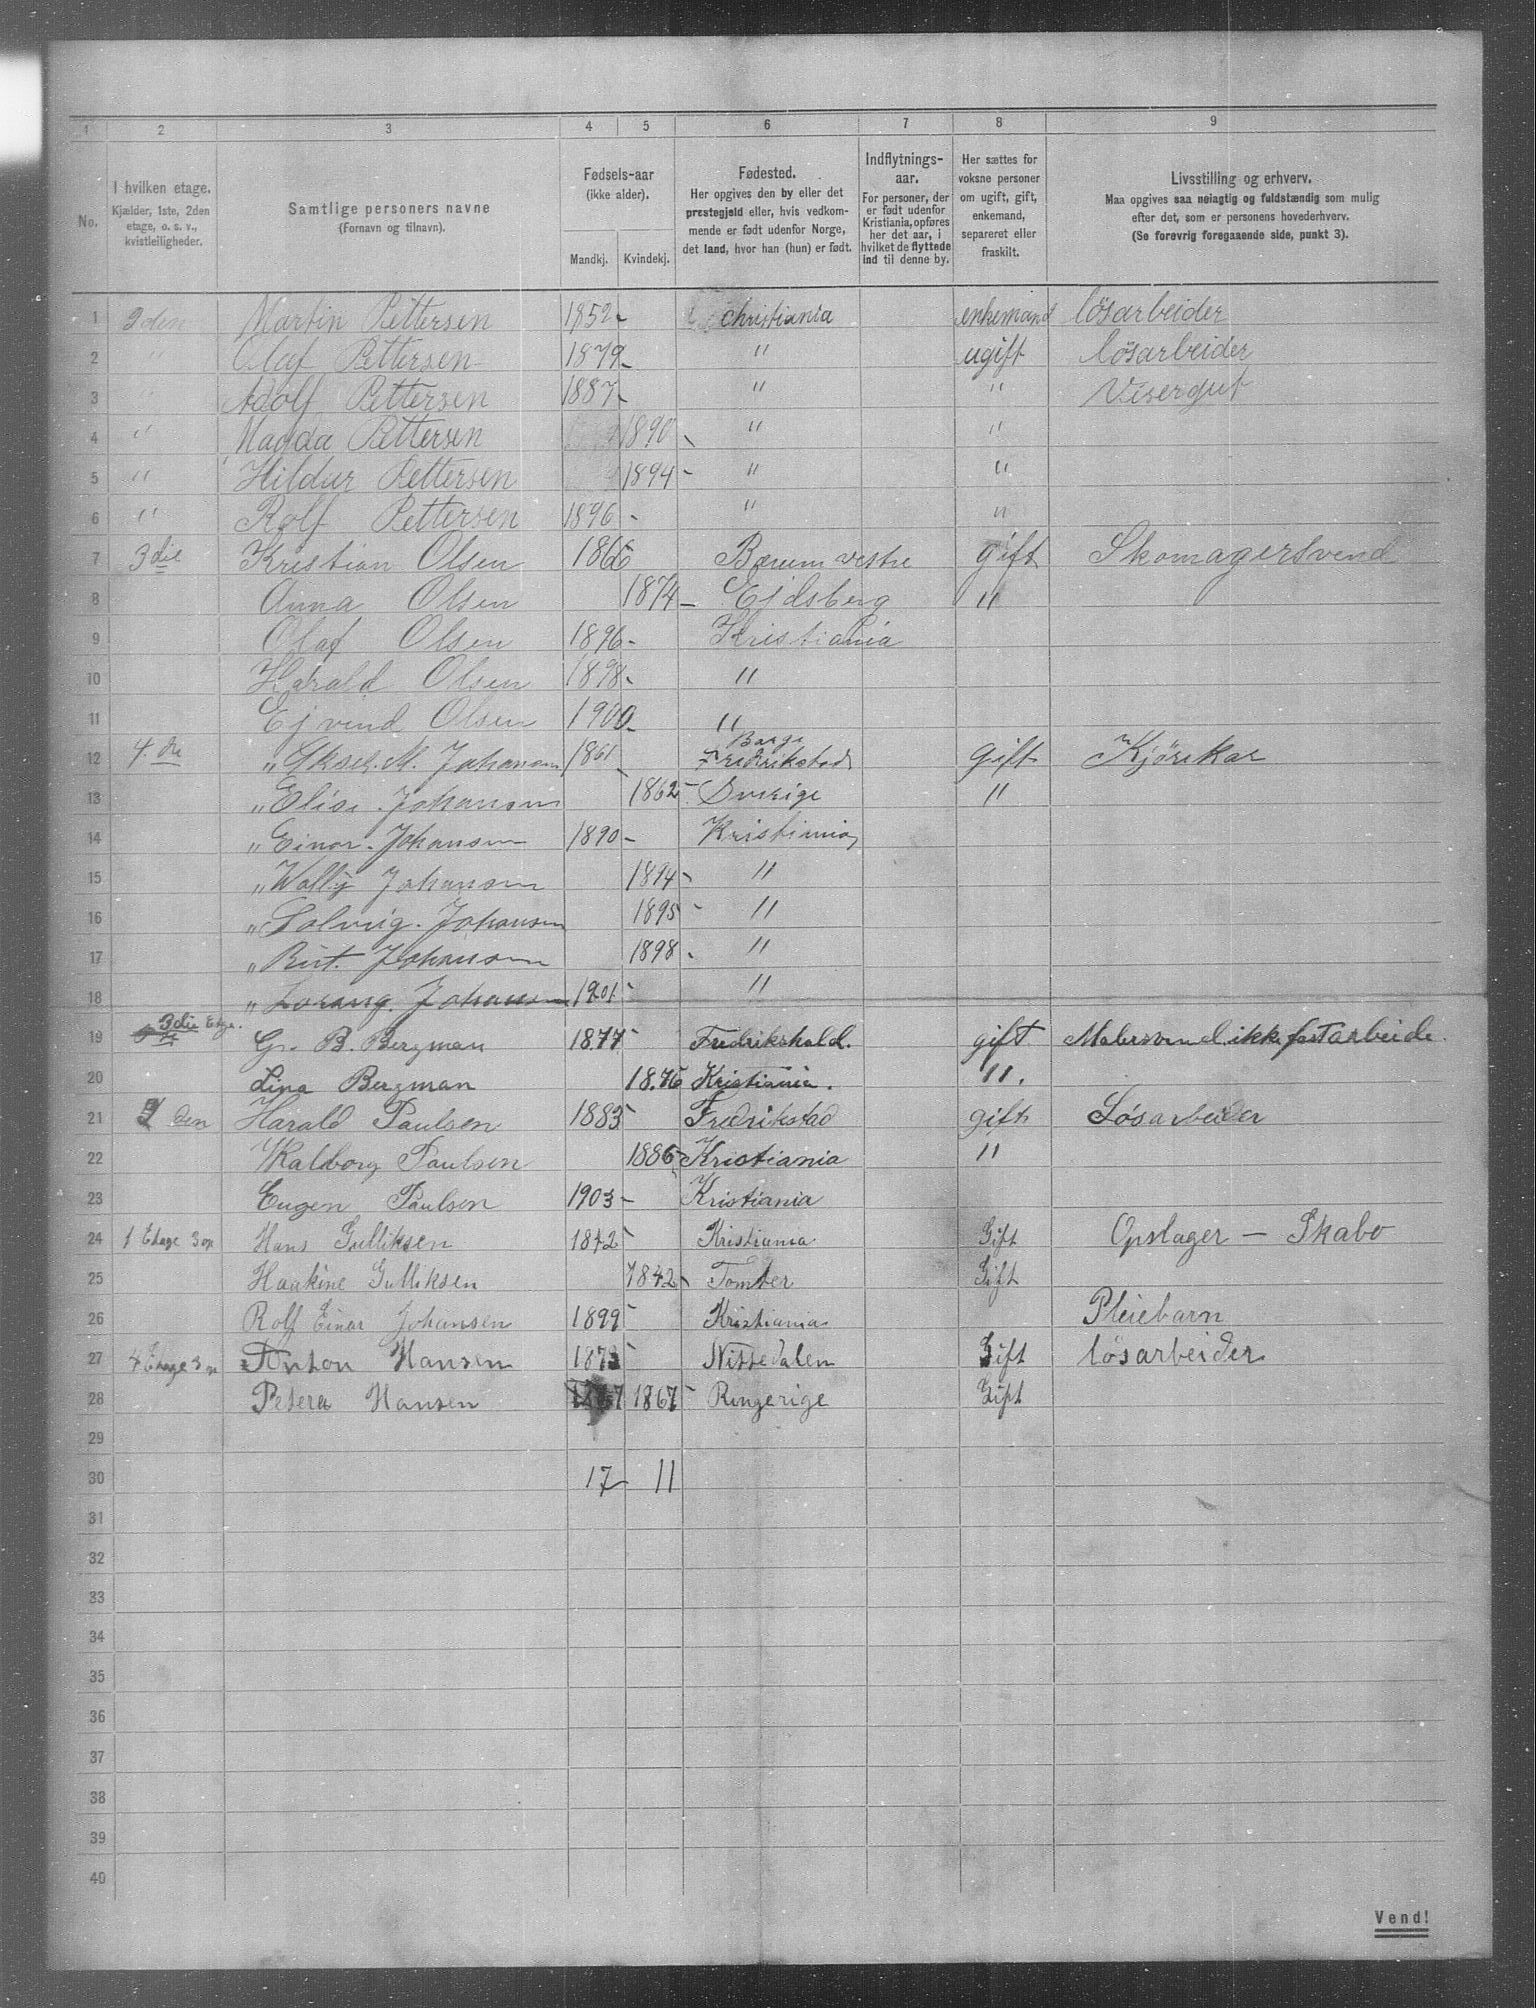 1 2 3 4 5 6 7 8 9
No.
I hvilken etage.
Kjælder, 1ste, 2den
etage, o. s. v.,
kvistleiligheder.
Samtlige personers navne
(Fornavn og tilnavn).
Fødsels-aar
(ikke alder).
Mandkj. Kvindekj.
Fødested.
Her opgives den by eller det
prestegjeld eller, hvis vedkom-
mende er født udenfor Norge,
det land, hvor han (hun) er født.
Indflytnings-
aar.
For personer, der
er født udenfor
Kristiania, opføres
her det aar, i
hvilket de flyttede
ind til denne by.
Her sættes for
voksne personer
om ugift, gift,
enkemand,
separeret eller
fraskilt.
Livsstilling og erhverv.
Maa opgives saa nøiagtig og fuldstændig som mulig
efter det, som er personens hovederhverv.
(Se forøvrig foregaaende side, punkt 3).
1 2den Martin Pettersen 1852 - christiania enkemand lösarbeider
2 " Olaf Pettersen 1879 - " ugift lösarbeider
3 " Adolf Pettersen 1887 - " " Visergut
4 " Magda Pettersen 1890 - " "
5 " Hildur Pettersen 1894 - " "
6 " Rolf Pettersen 1896 - " "
7 3die Kristian Olsen 1866 Bærum vestre gift Skomagersvend
8 Anna Olsen 1874 - Ejdsberg "
9 Olaf Olsen 1896 - Kristiania
10 Harald Olsen 1898 - "
11 Ejvend Olsen 1900 - "
12 4.de " Aksel. M. Johansen 1861 - Borge Fredrikstad gift Kjørekar
13 " Elise. Johansen 1862 - Sverige "
14 " Einar. Johansen 1890 - Kristiania
15 " Wally Johansen 1894 - "
16 " Solveig. Johansen 1895 - "
17 " Johansen 1898 - "
18 " Lorang. Johansen 1901 - "
19 3die Etge. G. B. Bergman 1877 - Fredrikshald. gift Malersvend ikke fast arbeide.
20 Lina Bergman 1876 Kristiania. ".
21 2den Harald Paulsen 1883 - Fredrikstad gift Løsarbeider
22 Walborg Paulsen 1886 - Kristiania "
23 Eugen Paulsen 1903 - Kristiania
24 1 Etage 3 op Hans Gulliksen 1842 - Kristiania Gift Opslager - Skabo
25 Haakine Gulliksen 1842 - Tomter Gift
26 Rolf Einar Johansen 1899 - Kristiania Pleiebarn
27 4 Etage 3 op Anton Hansen 1873 - Nittedalen Gift lösarbeider
28 Petera Hansen 1867 - Ringerige Gift
29
30 17 - 11
31
32
33
34
35
36
37
38
39
40
Vend!